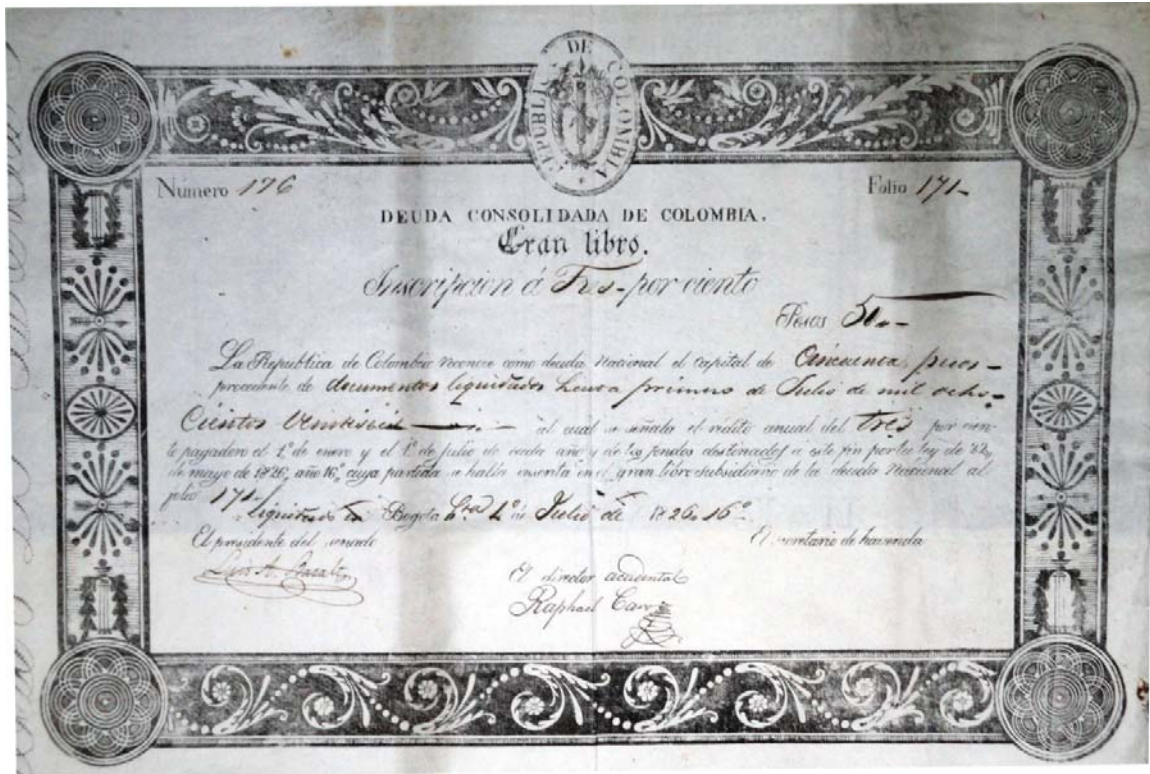 REPUBLICA DE COLOMBIA
Número 176 Folio 171
DEUDA CONSOLIDADA DE COLOMBIA.
Gran libro.
Inscripcion á Tres por ciento
Pesos 50
La Republica de Colombia reconoce como deuda Nacional el capital de Cincuenta pesos
procedente de documentos liquidados hasta primero de Julio de mil ocho
Cientos Veintiseis al cual se señala el rédito anual del tres por cien-
to pagadero el 1º de enero y el 1º de julio de cada año y de los fondos destinados a este fin por la ley de 22
de mayo de 1826, año 16º cuya partida se halla inscrita en el gran libro subsidiario de la deuda Nacional al
folio 171 liquidado en Bogota 1º de Julio de 1826. 16º
El presidente del senado El secretario de hacienda
Luis A.
El director accidental
Raphael Caro